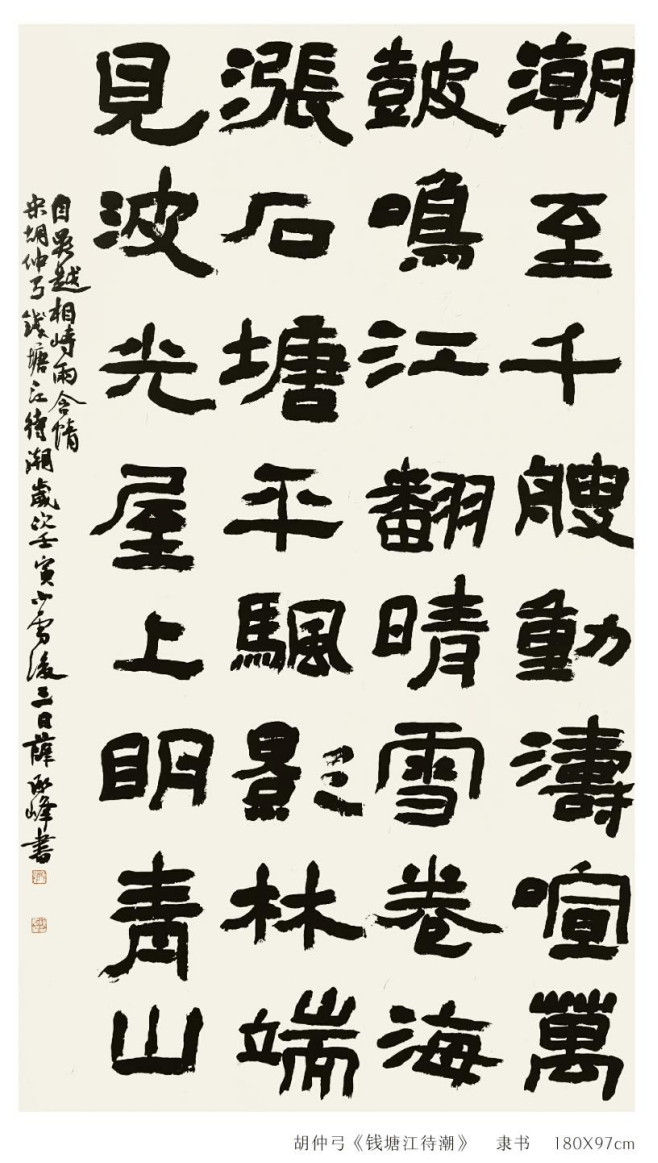 潮至千艘動濤喧萬
鼓鳴江翻晴雪卷海
漲石塘平颿影林端
見波光屋上明青山
自吳越相峙兩含情
宋胡仲弓錢塘江待潮歲次壬寅小雪後三日薛永峰書
胡仲弓《钱塘江待潮》 隶书 180X97cm